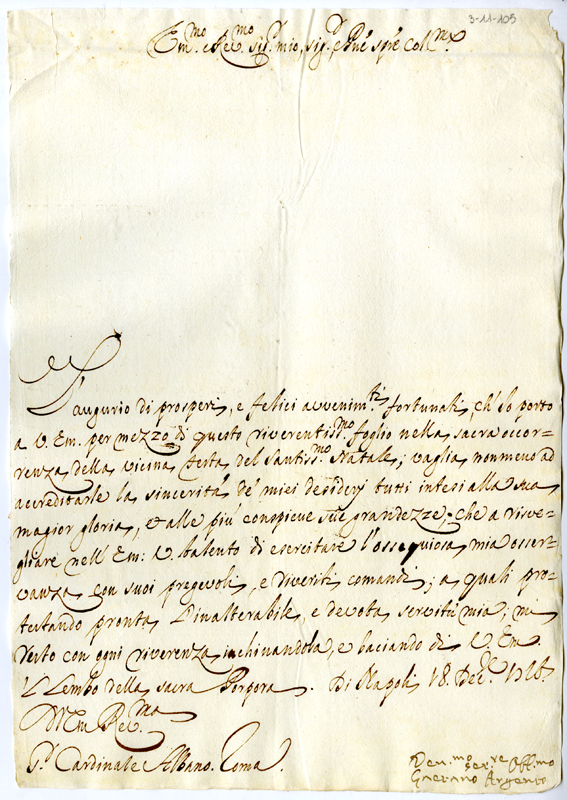 3-11-105
Em.mo e Re.mo sig.r mio, sig.r e Pne
L'augurio di prosperi, e felici avvenim.ti fortunati, ch'Io porto
a V. Em. per mezzo di questo riverentiss.mo foglio nella sacra occor-
renza della vicina festa del Santiss.mo Natale; vaglia nonmeno ad
accreditarle la sincerità de' miei desiderj tutti intesi alla sua
magior gloria, et alle più conspicue sue grandezze; che a risve-
gliare nell'Em: V. talento di esercitare l'ossequiosa mia osser-
vanza con suoi pregevoli, e riveriti comandi; a quali pro-
testando pronta l'inalterabile, e devota servitù mia; mi
resto con ogni riverenza inchinandola, e baciando di V. Em.
il Lembo della sacra Porpora. Di Napoli 18. Dec.e
Di V. Em. Re.ma
S.r Cardinale Albano. Roma.
Dev.mo ser.re Obl.mo
Gaetano Argento